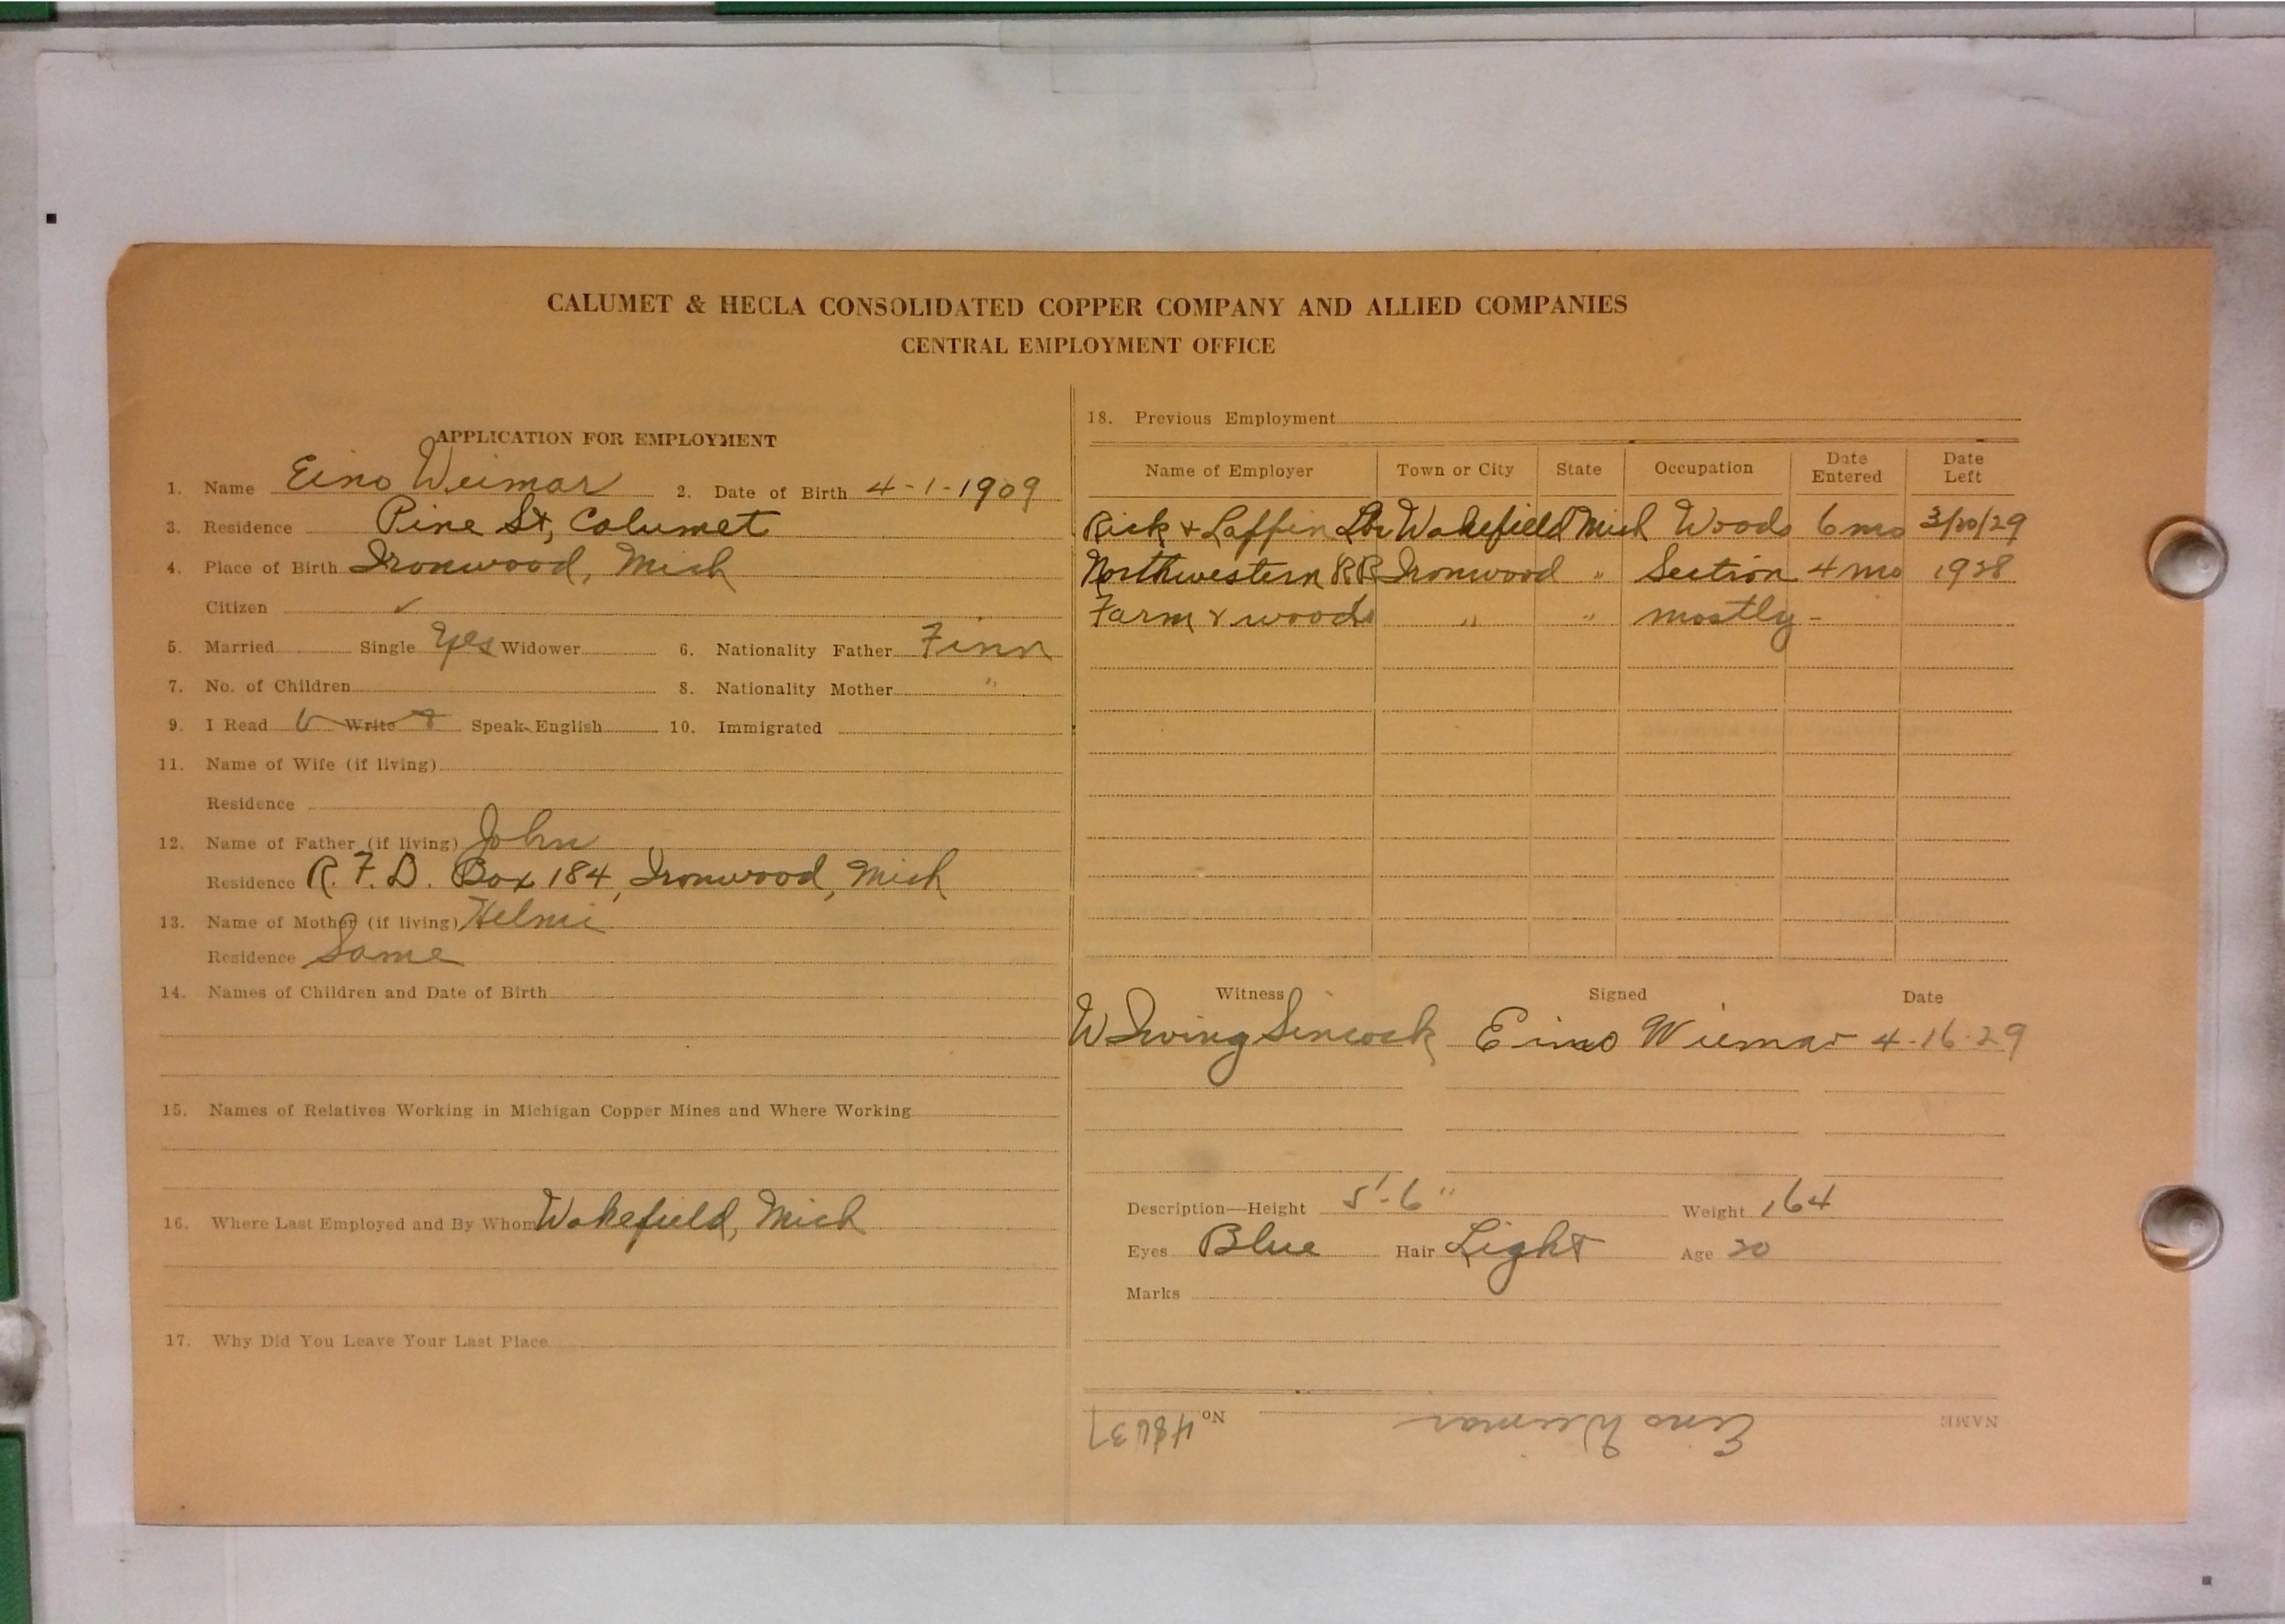 CALUMET & HECLA CONSOLIDATED COPPER COMPANY AND ALLIED COMPANIES
CENTRAL EMPLOYMENT OFFICE
APPLICATION FOR EMPLOYMENT
1. Name Eino Weimar 2. Date of Birth 4-1-1909
3. Residence Pine St, Calumet
4. Place of Birth Ironwood, Mich
Citizen ✓
5. Married Single Yes Widower 6. Nationality Father Finn
7. No. of Children 8. Nationality Mother "
9. I Read Write Speak English 10. Immigrated
11. Name of Wife (if living)
Residence
12. Name of Father (if living) John
Residence R.F.D. Box 184, Ironwood, Mich
13. Name of Mother (if living) Helmi
Residence Same
14. Names of Children and Date of Birth
15. Names of Relatives Working in Michigan Copper Mines and Where Working
16. Where Last Employed and By Whom Wakefield, Mich
17. Why Did You Leave Your Last Place
18. Previous Employment
Name of Employer Town or City State Occupation Date Entered Date Left
Rick + Laffin Wakefield Mich Woods 6 mo 3/20/29
Northwestern RR Ironwood " Section 4 mo 1928
Farm & woods " " mostly -
Witness Signed Date
W Irving Sincock Eino Wiemar 4-16-29
Description—Height 5'-6" Weight 164
Eyes Blue Hair Light Age 20
Marks
NAME Eino Weimar No.